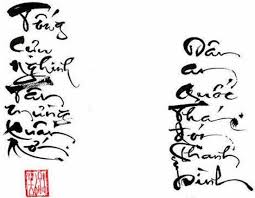 Tống
Cựu
Nghinh
Tân
mừng
Xuân
Mới
Dân
an
Quốc
thái
đón
thanh
bình